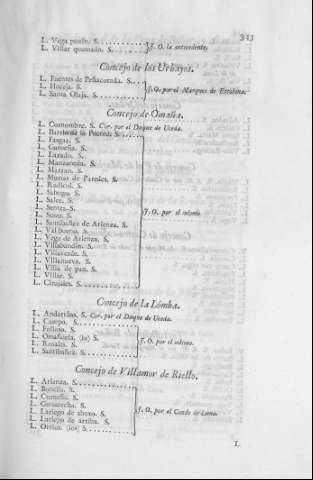 323
L. Vega pujin. S.
L. Villar quemado. S. J. O. la antecedente.
Concejo de los Urbayos.
L. Fuentes de Peñacorada. S.
L. Horcaja. S. J. O. por el Marques de Escalona.
L. Santa Olaja. S.
Concejo de Omaña.
L. Cornombre. S. Cor. por el Duque de Uceda.
L. Barrio de la Puente. S.
L. Fasgar. S.
L. Garueña. S.
L. Lazado. S.
L. Manzaneda. S.
L. Marzan. S.
L. Murias de Paredes. S.
L. Rodicol. S.
L. Sabugo. S.
L. Salce. S.
L. Senra. S.
L. Soto. S. J. O. por el mismo.
L. Santibañez de Arienza. S.
L. Valbueno. S.
L. Vega de Arienza. S.
L. Villabandin. S.
L. Villaverde. S.
L. Villanueva. S.
L. Villa de pan. S.
L. Villar. S.
L. Cirujales. S.
Concejo de la Lomba.
L. Andarraso. S. Cor. por el Duque de Uceda.
L. Campo. S.
L. Folloso. S.
L. Omañuela. (la) S. J. O. por el mismo.
L. Rosales. S.
L. Santibañez. S.
Concejo de Villamor de Riello.
L. Arienza. S.
L. Bonella. S.
L. Curueña. S.
L. Guisatecha. S.
L. Lariego de abaxo. S. J. O. por el Conde de Luna.
L. Lariego de arriba. S.
L. Orrios. (los) S.
L.